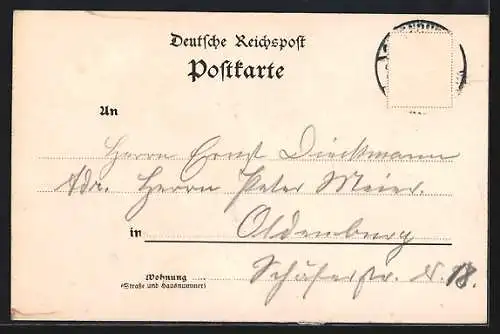 Deutsche Reichspost
Postkarte
An
Herrn Ernst Dieckmann
Adr. Herrn Peter Meier.
in Oldenburg
Wohnung Schäferstr. N. 18.
(Straße und Hausnummer)